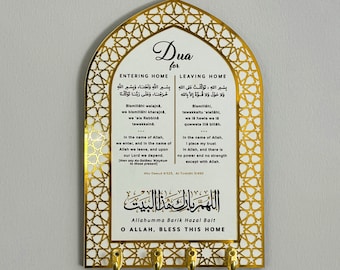 Dua
for
ENTERING HOME
بِسْمِ اللهِ وَلَجْنَا، وَبِسْمِ اللهِ
خَرَجْنَا، وَعَلَى رَبِّنَا تَوَكَّلْنَا
Bismillahi walajnā,
wa bismillahi kharajnā,
wa 'ala Rabbinā
tawakkalnā.
In the name of Allah,
we enter, and in the name of
Allah we leave, and upon
our Lord we depend.
LEAVING HOME
بِسْمِ اللهِ تَوَكَّلْتُ عَلَى اللهِ
وَلَا حَوْلَ وَلَا قُوَّةَ إِلَّا بِاللهِ
Bismillāhi,
tawakkaltu 'alallahi,
wa la hawla wa lā
quwwata illā billāh.
In the name of Allah,
I place my trust
in Allah, and there is
no power and no strength
except with Allah.
اللهم بارك هذا البيت
Allahumma Barik Hazal Bait
O ALLAH, BLESS THIS HOME